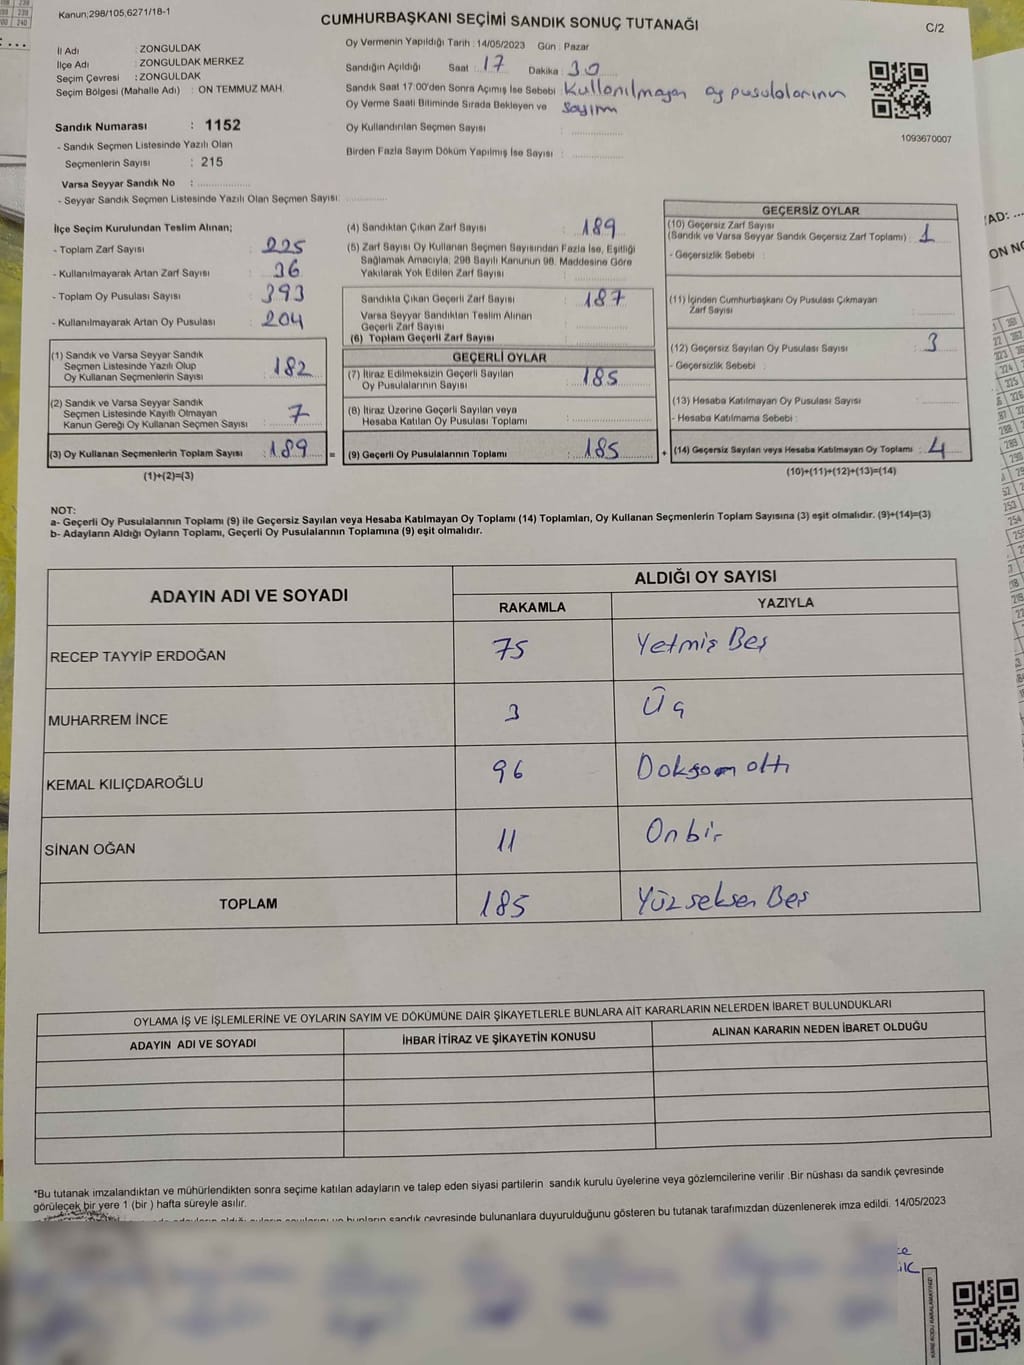 Kanun;298/105,6271/18-1
CUMHURBAŞKANI SEÇİMİ SANDIK SONUÇ TUTANAĞI
C/2
İl Adı : ZONGULDAK
İlçe Adı : ZONGULDAK MERKEZ
Seçim Çevresi : ZONGULDAK
Seçim Bölgesi (Mahalle Adı) : ON TEMMUZ MAH.
Sandık Numarası : 1152
- Sandık Seçmen Listesinde Yazılı Olan
Seçmenlerin Sayısı : 215
Varsa Seyyar Sandık No :
- Seyyar Sandık Seçmen Listesinde Yazılı Olan Seçmen Sayısı:
Oy Vermenin Yapıldığı Tarih : 14/05/2023 Gün : Pazar
Sandığın Açıldığı Saat : 17 Dakika : 30
Sandık Saat 17:00'den Sonra Açımış İse Sebebi : Kullanılmayan oy pusulalarının
Oy Verme Saati Bitiminde Sırada Bekleyen ve sayımı
Oy Kullandırılan Seçmen Sayısı :
Birden Fazla Sayım Döküm Yapılmış İse Sayısı :
1093670007
İlçe Seçim Kurulundan Teslim Alınan;
- Toplam Zarf Sayısı : 225
- Kullanılmayarak Artan Zarf Sayısı : 36
- Toplam Oy Pusulası Sayısı : 393
- Kullanılmayarak Artan Oy Pusulası : 204
(1) Sandık ve Varsa Seyyar Sandık
Seçmen Listesinde Yazılı Olup
Oy Kullanan Seçmenlerin Sayısı : 182
(2) Sandık ve Varsa Seyyar Sandık
Seçmen Listesinde Kayıtlı Olmayan
Kanun Gereği Oy Kullanan Seçmen Sayısı : 7
(3) Oy Kullanan Seçmenlerin Toplam Sayısı : 189 =
(1)+(2)=(3)
(4) Sandıktan Çıkan Zarf Sayısı : 189
(5) Zarf Sayısı Oy Kullanan Seçmen Sayısından Fazla İse, Eşitliği
Sağlamak Amacıyla, 298 Sayılı Kanunun 98. Maddesine Göre
Yakılarak Yok Edilen Zarf Sayısı :
Sandıkta Çıkan Geçerli Zarf Sayısı : 187
Varsa Seyyar Sandıktan Teslim Alınan
Geçerli Zarf Sayısı :
(6) Toplam Geçerli Zarf Sayısı :
GEÇERLİ OYLAR
(7) İtiraz Edilmeksizin Geçerli Sayılan
Oy Pusulalarının Sayısı : 185
(8) İtiraz Üzerine Geçerli Sayılan veya
Hesaba Katılan Oy Pusulası Toplamı :
(9) Geçerli Oy Pusulalarının Toplamı : 185 +
GEÇERSİZ OYLAR
(10) Geçersiz Zarf Sayısı
(Sandık ve Varsa Seyyar Sandık Geçersiz Zarf Toplamı) : 1
- Geçersizlik Sebebi :
(11) İçinden Cumhurbaşkanı Oy Pusulası Çıkmayan
Zarf Sayısı :
(12) Geçersiz Sayılan Oy Pusulası Sayısı : 3
- Geçersizlik Sebebi :
(13) Hesaba Katılmayan Oy Pusulası Sayısı :
- Hesaba Katılmama Sebebi :
(14) Geçersiz Sayılan veya Hesaba Katılmayan Oy Toplamı : 4
(10)+(11)+(12)+(13)=(14)
NOT:
a- Geçerli Oy Pusulalarının Toplamı (9) ile Geçersiz Sayılan veya Hesaba Katılmayan Oy Toplamı (14) Toplamları, Oy Kullanan Seçmenlerin Toplam Sayısına (3) eşit olmalıdır. (9)+(14)=(3)
b- Adayların Aldığı Oyların Toplamı, Geçerli Oy Pusulalarının Toplamına (9) eşit olmalıdır.
ADAYIN ADI VE SOYADI ALDIĞI OY SAYISI
RAKAMLA YAZIYLA
RECEP TAYYİP ERDOĞAN 75 Yetmiş Beş
MUHARREM İNCE 3 Üç
KEMAL KILIÇDAROĞLU 96 Doksan altı
SİNAN OĞAN 11 Onbir
TOPLAM 185 Yüzseksen Beş
OYLAMA İŞ VE İŞLEMLERİNE VE OYLARIN SAYIM VE DÖKÜMÜNE DAİR ŞİKAYETLERLE BUNLARA AİT KARARLARIN NELERDEN İBARET BULUNDUKLARI
ADAYIN ADI VE SOYADI İHBAR İTİRAZ VE ŞİKAYETİN KONUSU ALINAN KARARIN NEDEN İBARET OLDUĞU
*Bu tutanak imzalandıktan ve mühürlendikten sonra seçime katılan adayların ve talep eden siyasi partilerin sandık kurulu üyelerine veya gözlemcilerine verilir .Bir nüshası da sandık çevresinde
görülecek bir yere 1 (bir ) hafta süreyle asılır.
bunların sandık çevresinde bulunanlara duyurulduğunu gösteren bu tutanak tarafımızdan düzenlenerek imza edildi. 14/05/2023